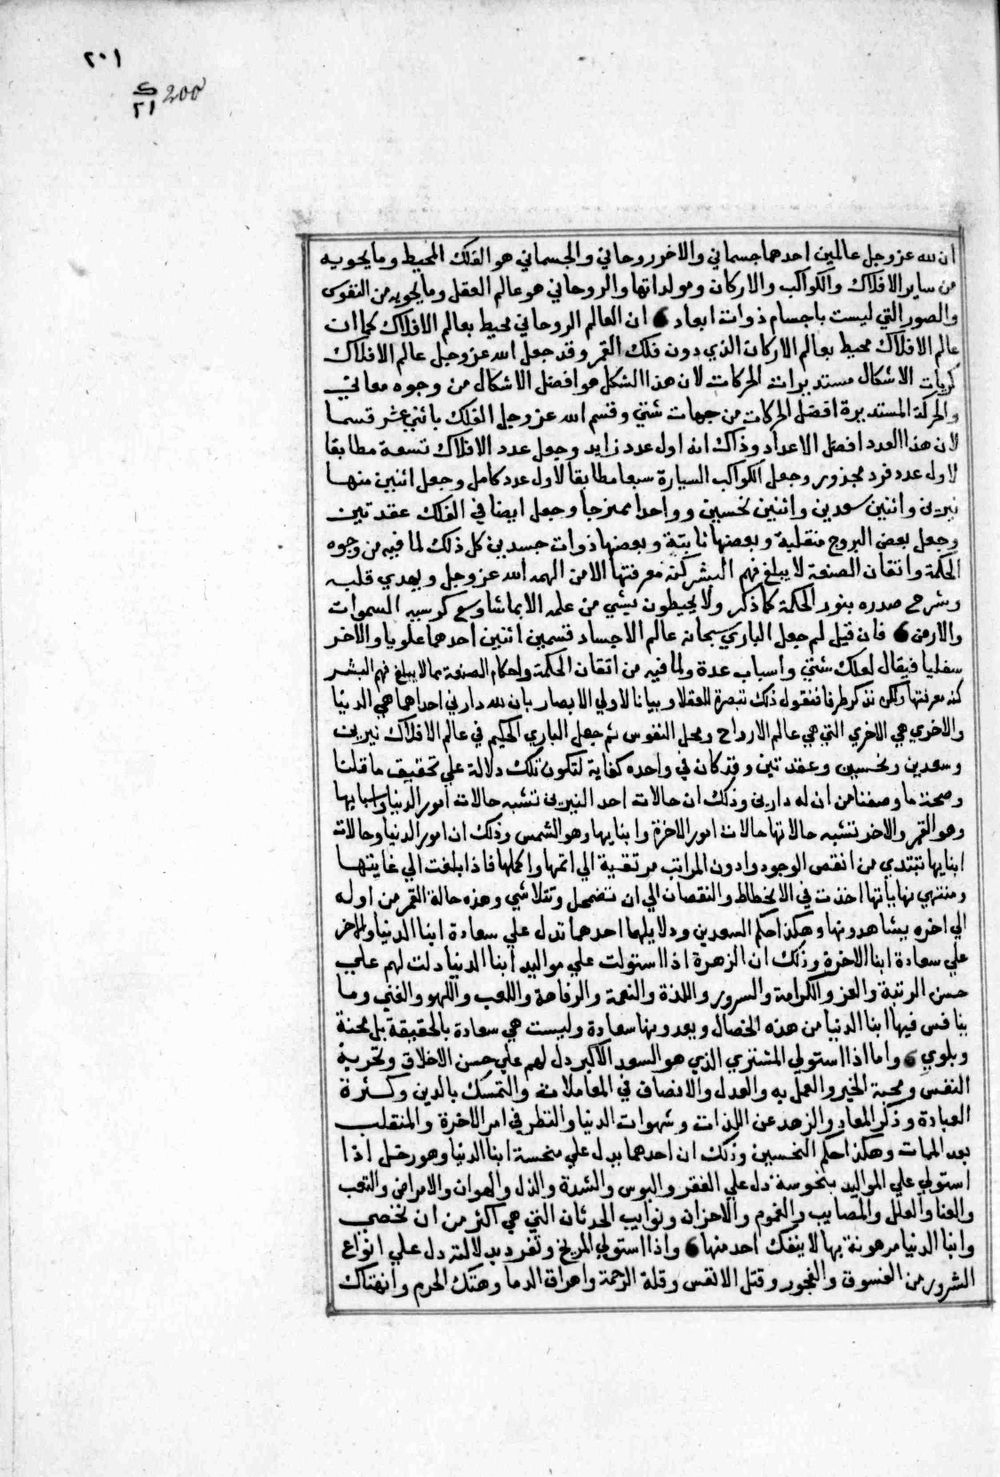 ٢٠١
ک
٢١
200
ان لله عز وجل عالمين احدهما جسماني والاخر روحاني والجسماني هو الفلك المحيط وما يحويه
من ساير الافلاك والكواكب والاركان ومولداتها والروحاني هو عالم العقل وما يحويه من النفوس
والصور التي ليست باجسام ذوات ابعاد ان العالم الروحاني محيط بعالم الافلاك كما ان
عالم الافلاك محيط بعالم الاركان الذي دون فلك القمر وقد جعل الله عز وجل عالم الافلاك
كريات الاشكال مستديرات الحركات لان هذا الشكل هو افضل الاشكال من وجوه معاني
والحركة المستديرة افضل الحركات من جهات شتي وقسم الله عز وجل الفلك باثني عشر قسما
لان هذا العدد افضل الاعداد وذاك انه اول عدد زايد وجعل عدد الافلاك تسعة مطابقا
لاول عدد فرد مجذور وجعل الكواكب السيارة سبعا مطابقا لاول عدد كامل وجعل اثنين منها
نيرين واثنين سعدين واثنين نحسين وواحدا ممتزجا وجعل ايضا في الفلك عقدتين
وجعل بعض البروج منقلبة وبعضها ثابتة وبعضها ذوات جسدين كل ذلك لما فيه من وجوه
الحكمة واتقان الصنعة لا يبلغ فهم البشر كنه معرفتها الا من الهمه الله عز وجل ويهدي قلبه
وشرح صدره بنور الحكمة كما ذكر ولا يحيطون بشي من علمه الا بما شا وسع كرسيه السموات
والارض فان قيل لم جعل الباري سبحانه عالم الاجساد قسمين اثنين احدهما علويا والاخر
سفليا فيقال لعلل شتي واسباب عدة ولما فيه من اتقان الحكمة واحكام الصنعة مما لا يبلغ فهم البشر
كنه معرفتها ولكن نذكر طرفا فنقول ذلك تبصرة للعقلا وبيانا لاولي الابصار بان لله دارين احداهما هي الدنيا
والاخري هي الاخري التي هي عالم الارواح ومحل النفوس ثم جعل الباري الحكيم في عالم الافلاك نيرين
وسعدين ونحسين وعقدتين وقد كان في واحده كفاية لتكون تلك دلالة علي تحقيق ما قلنا
وصحة ما وصفنا من ان له دارين وذلك ان حالات احد النيرين تشبه حالات امور الدنيا وابنايها
وهو القمر والاخر تشبه حالاتها حالات امور الاخرة وابنايها وهو الشمس وذلك ان امور الدنيا وحالات
ابنايها تبتدي من انقص الوجود وادون المراتب مرتقية الي اتمها واكملها فاذا بلغت الي غايتها
ومنتهي نهاياتها اخذت في الانحطاط والنقصان الي ان تضمحل وتتلاشي وهذه حالة القمر من اوله
الي اخره يشاهدونها وهكذا حكم السعدين ودلايلهما احدهما تدل علي سعادة ابنا الدنيا والاخر
علي سعادة ابنا الاخرة وذلك ان الزهرة اذا استولت علي مواليد ابنا الدنيا دلت لهم علي
حسن الرتبة والعز والكرامة والسرور واللذة والنعمة والرفاهة واللعب واللهو والغني وما
ينافس فيها ابنا الدنيا من هذه الخصال ويعدونها سعادة وليست هي سعادة بالحقيقة بل محنة
وبلوي واما اذا استولي المشتري الذي هو السعد الاكبر دل لهم علي حسن الاخلاق وتحرية
النفس ومحبة الخير والعمل به والعدل والانصاف في المعاملات والتمسك بالدين وكثرة
العبادة وذكر المعاد والزهد عن اللذات وشهوات الدنيا والنظر في امر الاخرة والمنقلب
بعد الممات وهكذا حكم النحسين وذلك ان احدهما يدل علي منحسة ابنا الدنيا وهو زحل اذا
استولي علي المواليد بنحوسه دل علي الفقر والبوس والشدة والذل والهوان والامراض والتعب
والعنا والعلل والمصايب والغموم والاحزان ونوايب الحدثان التي هي اكثر من ان تحصي
وابنا الدنيا مرهونة بها لا ينفك احد منها واذا استولي المريخ وتفرد بدلالته دل علي انواع
الشرور من الفسوق والفجور وقتل الانفس وقلة الرحمة واهراق الدما وهتك الحرم وانهتاك